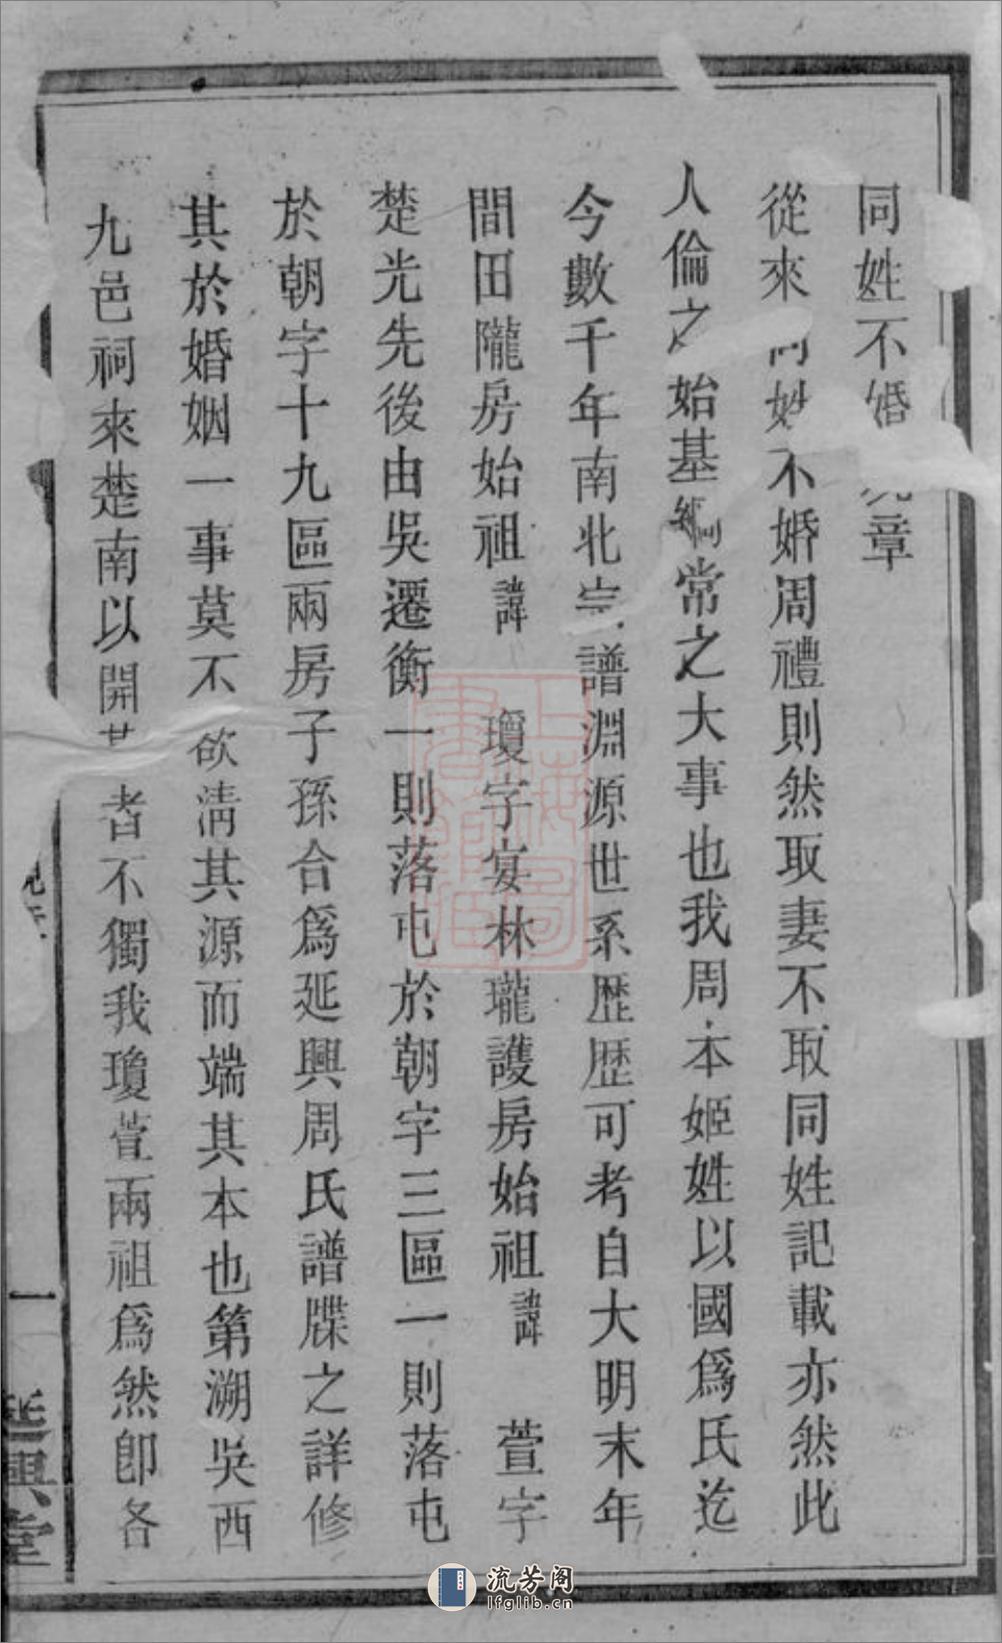 同姓不婚章
從來同姓不婚周禮則然取妻不取同姓記載亦然此
人倫之始基綱常之大事也我周本姬姓以國爲氏迄
今數千年南北宗譜淵源世系歷歷可考自大明末年
間田隴房始祖諱 瓊字宴林瓏護房始祖諱 萱字
楚光先後由吳遷衡一則落屯於朝字三區一則落屯
於朝字十九區兩房子孫合爲延興周氏譜牒之詳修
其於婚姻一事莫不欲淸其源而端其本也第溯吳西
九邑祠來楚南以開者不獨我瓊萱兩祖爲然卽各
一
興堂
上海圖書館藏
流芳阁
lfglib.cn